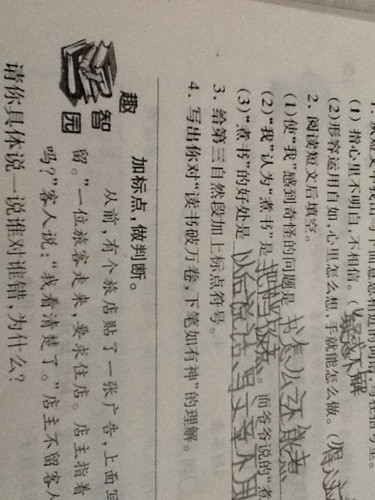 (1)指心里不明白,不相信。(
(2)形容运用自如,心里怎么想,手就能怎么做。(
2. 阅读短文后填空。
(1)使“我”感到奇怪的问题是 书怎么还能煮
(2)“我”认为“煮书”是 。而爷爷说的“煮
(3)“煮书”的好处是 以后说话、写文章不用
3. 给第三自然段加上标点符号。
4. 写出你对“读书破万卷,下笔如有神”的理解。
趣
智
园
加标点,做判断。
从前,有个旅店贴了一张广告,上面写
留。”一位旅客走来,要求住店。店主指着
吗?”客人说:“我看清楚了。”店主不留客人
请你具体说一说谁对谁错,为什么?